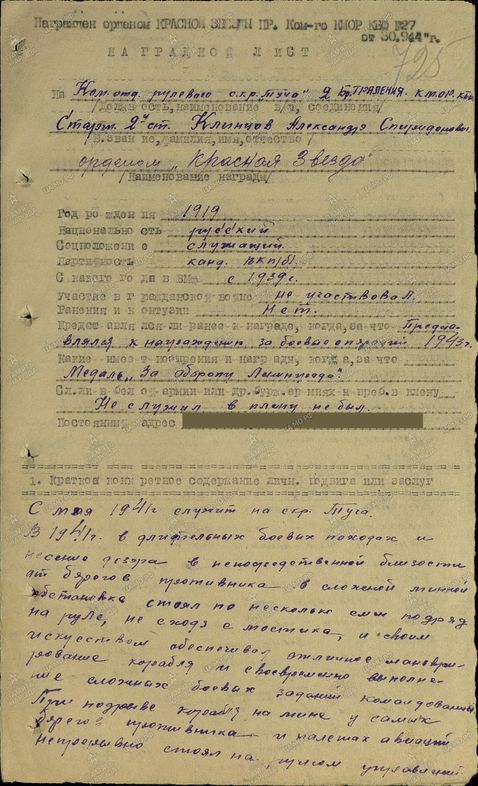 Награжден орденом КРАСНОЙ ЗВЕЗДЫ ПР. Ком-го КМОР КБФ №27
от 30. 944 г.
НАГРАДНОЙ ЛИСТ
725
На Ком. отд. рулевого с.кр. "Туча" 2 Бр. ТРАЛЕНИЯ. КМОР КБФ
/Должность, наименование в/ч, соединения/
Старш. 2й ст. Клинцов Александр Спиридонович
/В.звание, фамилия, имя, отчество/
орденом "Красная Звезда"
/Наименование награды/
Год рождения 1919
Национальность русский
Соцположение служащий
Партийность канд. ВКП/б/
С какого года в ВМФ с 1939г.
Участие в гражданской войне не участвовал.
Ранения и контузии Нет.
Представлялся ли ранее к награде, когда, за что Представ-
влялся к награждению за боевые операции 1943г.
Какие имеет поощрения и награды, когда, за что
Медаль "За оборону Ленинграда".
Служил в белой армии или др. бурж. армиях и преб. в плену
Не служил в плену не был.
Постоянный адрес
1. Краткое конкретное содержание личн. подвига или заслуг
С мая 1941г служит на скр. Туча.
В 1941г. в длительных боевых походах и
несение дозора в непосредственной близости
от берегов противника в сложной минной
обстановке стоял по несколько смен подряд
на руле, не сходя с мостика, и своим
искусством обеспечивал отличное маневри-
рование корабля и своевременно выполне-
ние сложных боевых заданий командования
При подрыве корабля на мине у самых
берегов противника и налетах авиации
непрерывно стоял на управлении